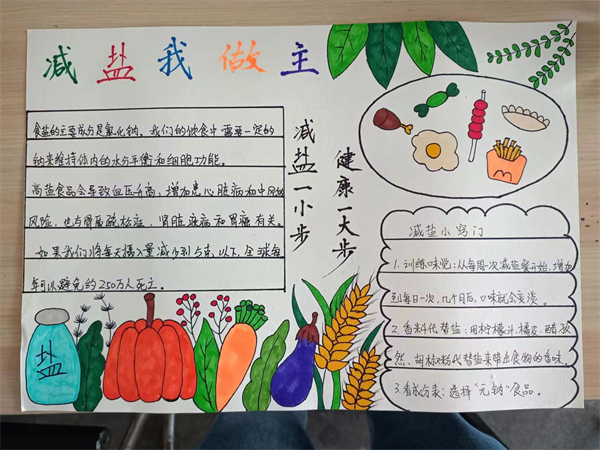 减盐我做主
食盐的主要成分是氯化钠。我们的饮食中需要一定的
钠来维持体内的水分平衡和细胞功能。
高盐食品会导致血压升高,增加患心脏病和中风的
风险,也与骨质疏松症,肾脏疾病和胃癌有关。
如果我们将每天摄入量减少到5克以下,全球每
年可以避免约250万人死亡。
减盐一小步
健康一大步
减盐小窍门
1.训练味觉:从每周一次减盐餐开始,增加
到每日一次,几个月后,口味就会变淡。
2.香料代替盐:用柠檬汁、橘皮、醋孜
然、胡椒粉代替盐来带出食物的香味。
3.看成分表:选择“无钠”食品。
盐